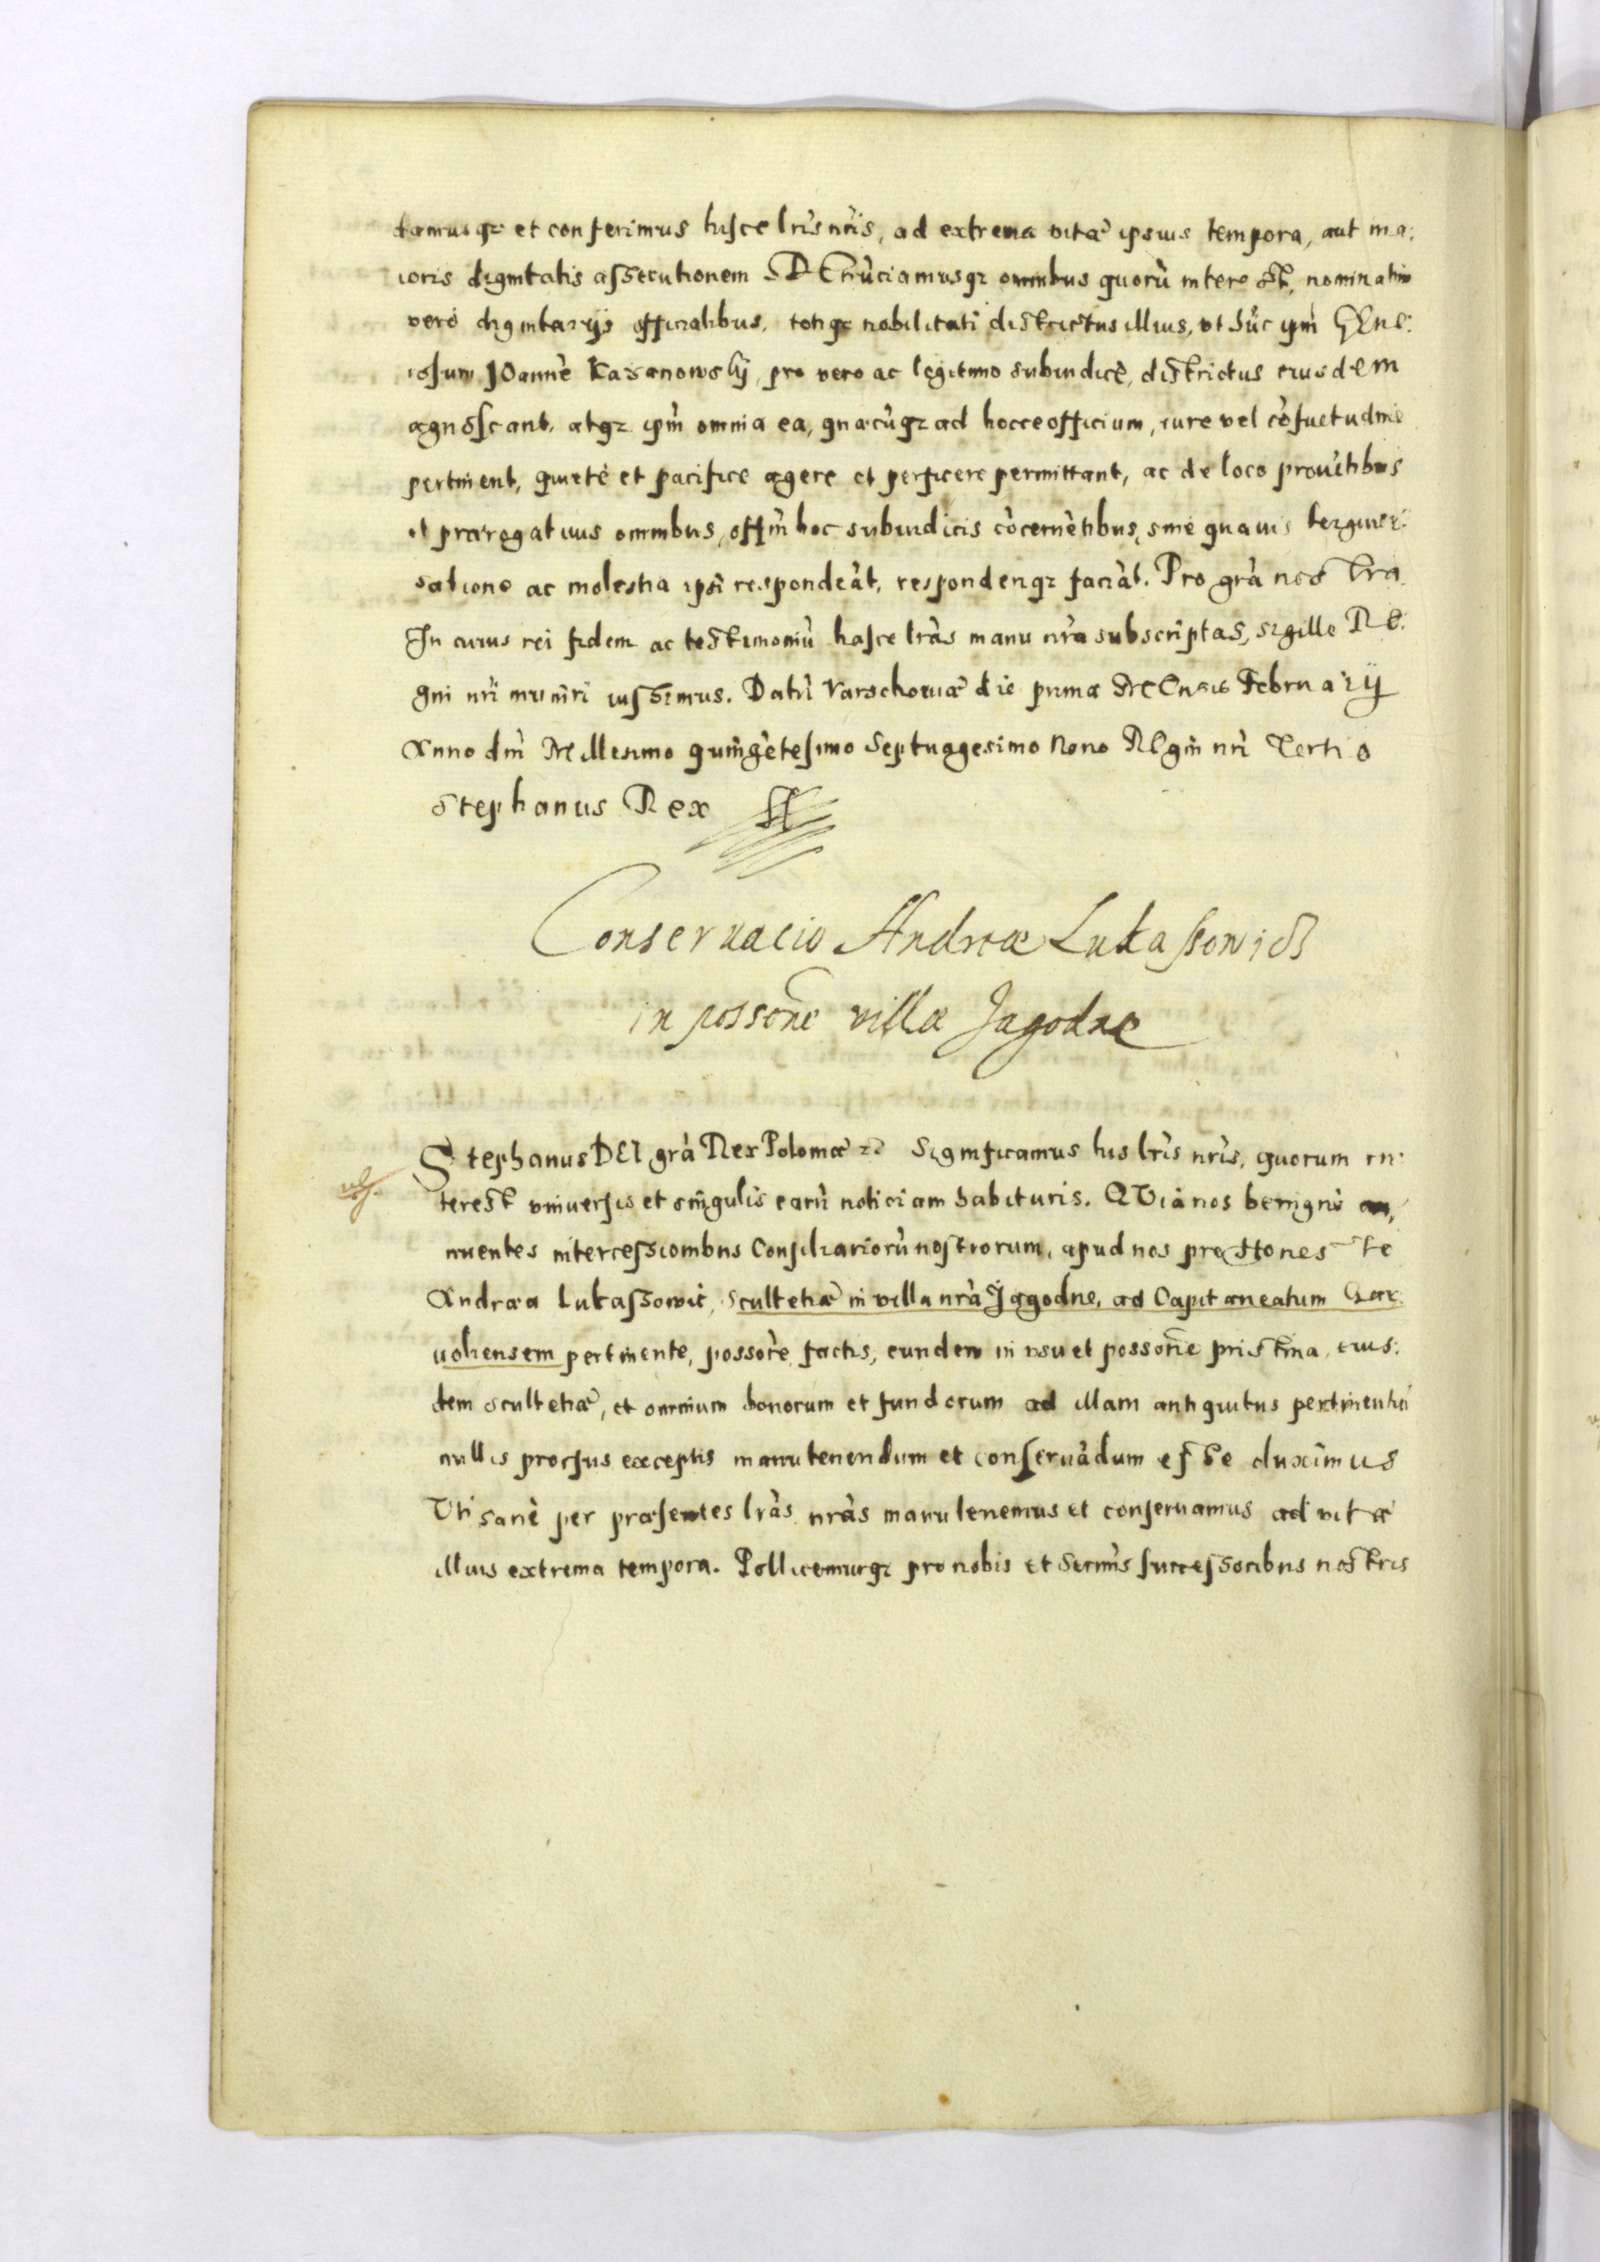 damusq3 et conferimus hisce lr̃is nr̃is, ad extrema vitæ ipsius tempora, aut ma:
ioris dignitatis assecutionem DEnũciamusq3 omnibus quorũ interest, nominatim
vero dignitarijs officialibus, totiq3 nobilitati districtus illius, vt hũc ipm̃ GEne:
rosum JOannẽ Kazanowskij pro vero ac legitimo subiudicẽ, districtus eiusdem
agnoscant, atq3 ipm̃ omnia ea, quæcũq3 ad hocce officium, iure vel cõsuetudine
pertinent, quietè et pacifice agere et perficere permittant, ac de loco prouẽtibus
et prærogatiuis omnibus, offm̃ hoc subiudicis cõcernẽtibus, sine quauis tergiuer:
satione ac molestia ipsi respondeãt, responderiq3 faciãt. Pro grã nostra
In cuius rei fidem ac testimoniũ hasce lr̃as manu nr̃a subscriptas, sigillo RE:
gni nr̃i muniri iussimus. Datũ Varschouiæ die prima MEnsis Februarij
Anno dm̃ Millesimo quingẽtesimo Septuagesimo Nono REgni nr̃i Tertio
Stephanus Rex
Conseruacio Andreæ Lukassowicz
in possoñe villæ Jagodne
Stephanus DEI grã Rex Poloniæ Significamus his lr̃is nr̃is, quorum in:
terest vniuersis et singulis earũ noticiam habituris. QVia nos benignè an,
nuentes intercessionibus Consiliariorũ nostrorum, apud nos pro Honeste
Andrea Lukassowic, scultetiæ in villa nr̃a Jagodne, ad Capitaneatum Gar:
uoliensem pertinente, possõre factis, eundem in vsu et possoñe pristina eius:
dem scultetiæ, et omnium bonorum et fundorum ad illam antiquitus pertinentiũ
nullis prorsus exceptis manutenendum et conseruãdum esse duximus
Vti sanè per præsentes lr̃as nr̃as manutenemus et conseruamus ad vitæ
illius extrema tempora. Pollicemurq3 pro nobis et Serm̃is successoribus nostris